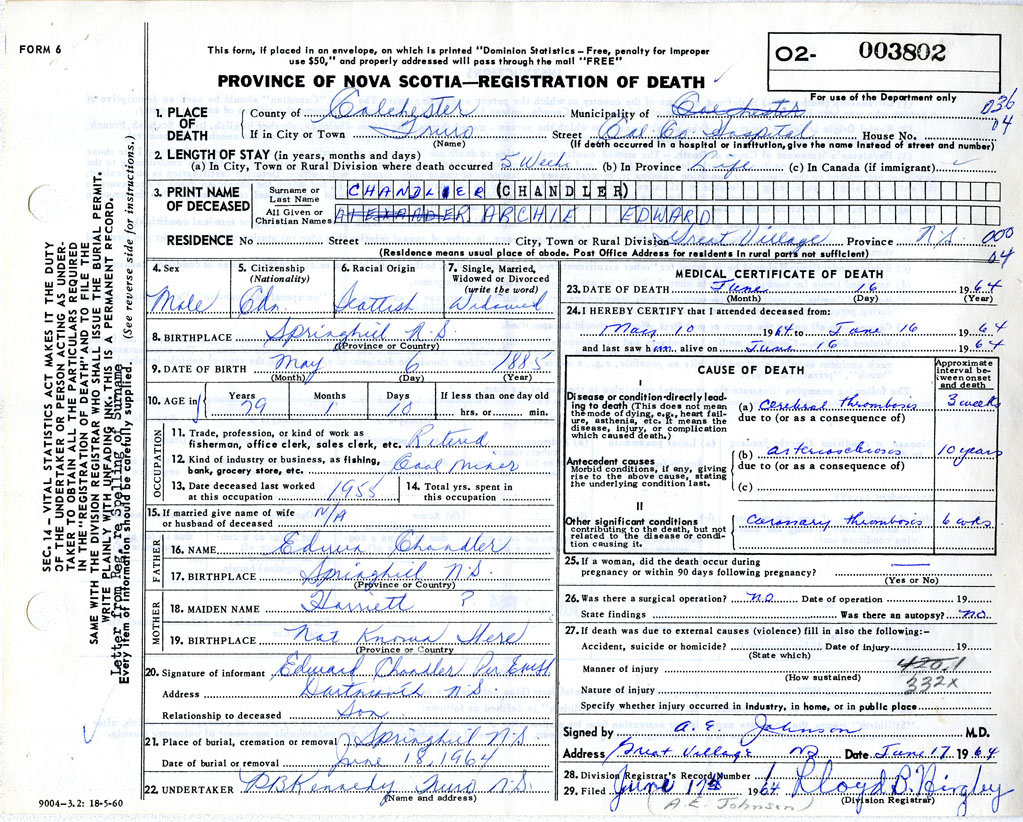 FORM 6
This form, if placed in an envelope, on which is printed "Dominion Statistics – Free, penalty for improper
use $50," and properly addressed will pass through the mail "FREE"
O2- 003802
PROVINCE OF NOVA SCOTIA—REGISTRATION OF DEATH
For use of the Department only
036
04
1. PLACE OF DEATH
County of Colchester Municipality of Colchester
If in City or Town Truro Street Col. Co. Hospital House No.
(Name) (If death occurred in a hospital or institution, give the name instead of street and number)
2. LENGTH OF STAY (in years, months and days)
(a) In City, Town or Rural Division where death occurred 5 Week (b) In Province Life (c) In Canada (if immigrant)
3. PRINT NAME OF DECEASED
Surname or Last Name CHANDLIER (CHANDLER)
All Given or Christian Names ALEXANDER ARCHIE EDWARD
RESIDENCE No Street City, Town or Rural Division Great Village Province N.S. 000
(Residence means usual place of abode. Post Office Address for residents in rural parts not sufficient) 04
4. Sex Male
5. Citizenship (Nationality) Cdn
6. Racial Origin Scottish
7. Single, Married, Widowed or Divorced (write the word) Widowed
8. BIRTHPLACE Springhill N.S.
(Province or Country)
9. DATE OF BIRTH May 6 1885
(Month) (Day) (Year)
10. AGE in Years 79 Months 1 Days 10 If less than one day old hrs. or min.
OCCUPATION
11. Trade, profession or kind of work as
fisherman, office clerk, sales clerk, etc. Retired
12. Kind of industry or business, as fishing,
bank, grocery store, etc. Coal Miner
13. Date deceased last worked
at this occupation 1955
14. Total yrs. spent in
this occupation
15. If married give name of wife
or husband of deceased N/A
FATHER
16. NAME Edwin Chandler
17. BIRTHPLACE Springhill N.S.
(Province or Country)
MOTHER
18. MAIDEN NAME Harriett ?
19. BIRTHPLACE Not Known Here
(Province or Country
20. Signature of informant Edward Chandler Per
Address Dartmouth N.S.
Relationship to deceased Son
21. Place of burial, cremation or removal Springhill N.S
Date of burial or removal June 18, 1964
22. UNDERTAKER P.B. Kennedy Truro N.S.
(Name and address)
9004–3.2: 18-5-60
MEDICAL CERTIFICATE OF DEATH
23. DATE OF DEATH June 16 1964
(Month) (Day) (Year)
24. I HEREBY CERTIFY that I attended deceased from:
May 10 1964 to June 16 1964
and last saw him alive on June 16 1964
CAUSE OF DEATH
Approximate interval between onset and death
I
Disease or condition directly leading to death (This does not mean the mode of dying, e.g., heart failure, asthenia, etc. It means the disease, injury, or complication which caused death.)
(a) cerebral thrombosis 3 weeks
due to (or as a consequence of)
Antecedent causes
Morbid conditions, if any, giving rise to the above cause, stating the underlying condition last.
(b) arteriosclerosis 10 years
due to (or as a consequence of)
(c)
II
Other significant conditions
contributing to the death, but not related to the disease or condition causing it.
coronary thrombosis 6 wks.
25. If a woman, did the death occur during
pregnancy or within 90 days following pregnancy? —
(Yes or No)
26. Was there a surgical operation? NO Date of operation 19
State findings Was there an autopsy? NO.
27. If death was due to external causes (violence) fill in also the following:–
Accident, suicide or homicide? Date of injury 19
(State which)
Manner of injury 420.1
(How sustained)
332x
Nature of injury
Specify whether injury occurred in industry, in home, or in public place
Signed by A. E. Johnson M.D.
Address Great Village NS Date June 17 1964
28. Division Registrar's Record Number 1
29. Filed June 17th 1964 Lloyd B.
(A.E. Johnson) (Division Registrar)
SEC. 14 – VITAL STATISTICS ACT MAKES IT THE DUTY
OF THE UNDERTAKER OR PERSON ACTING AS UNDER-
TAKER TO OBTAIN ALL THE PARTICULARS REQUIRED
IN THE "REGISTRATION OF DEATH" AND TO FILE THE
SAME WITH THE DIVISION REGISTRAR WHO SHALL ISSUE THE BURIAL PERMIT.
WRITE PLAINLY WITH UNFADING INK. THIS IS A PERMANENT RECORD.
Letter from Reg. re Spelling of Surname
Every item of information should be carefully supplied. (See reverse side for instructions.)